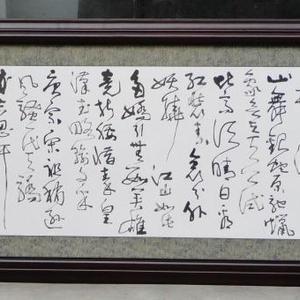 山舞銀蛇原馳蠟
象欲与天公试
比高须晴日看
红装素裹分外
妖娆 江山如此
多嬌引无数英雄
竞折腰惜秦皇
漢武略输文采
唐宗宋祖稍逊
風骚一代天骄
成吉思汗